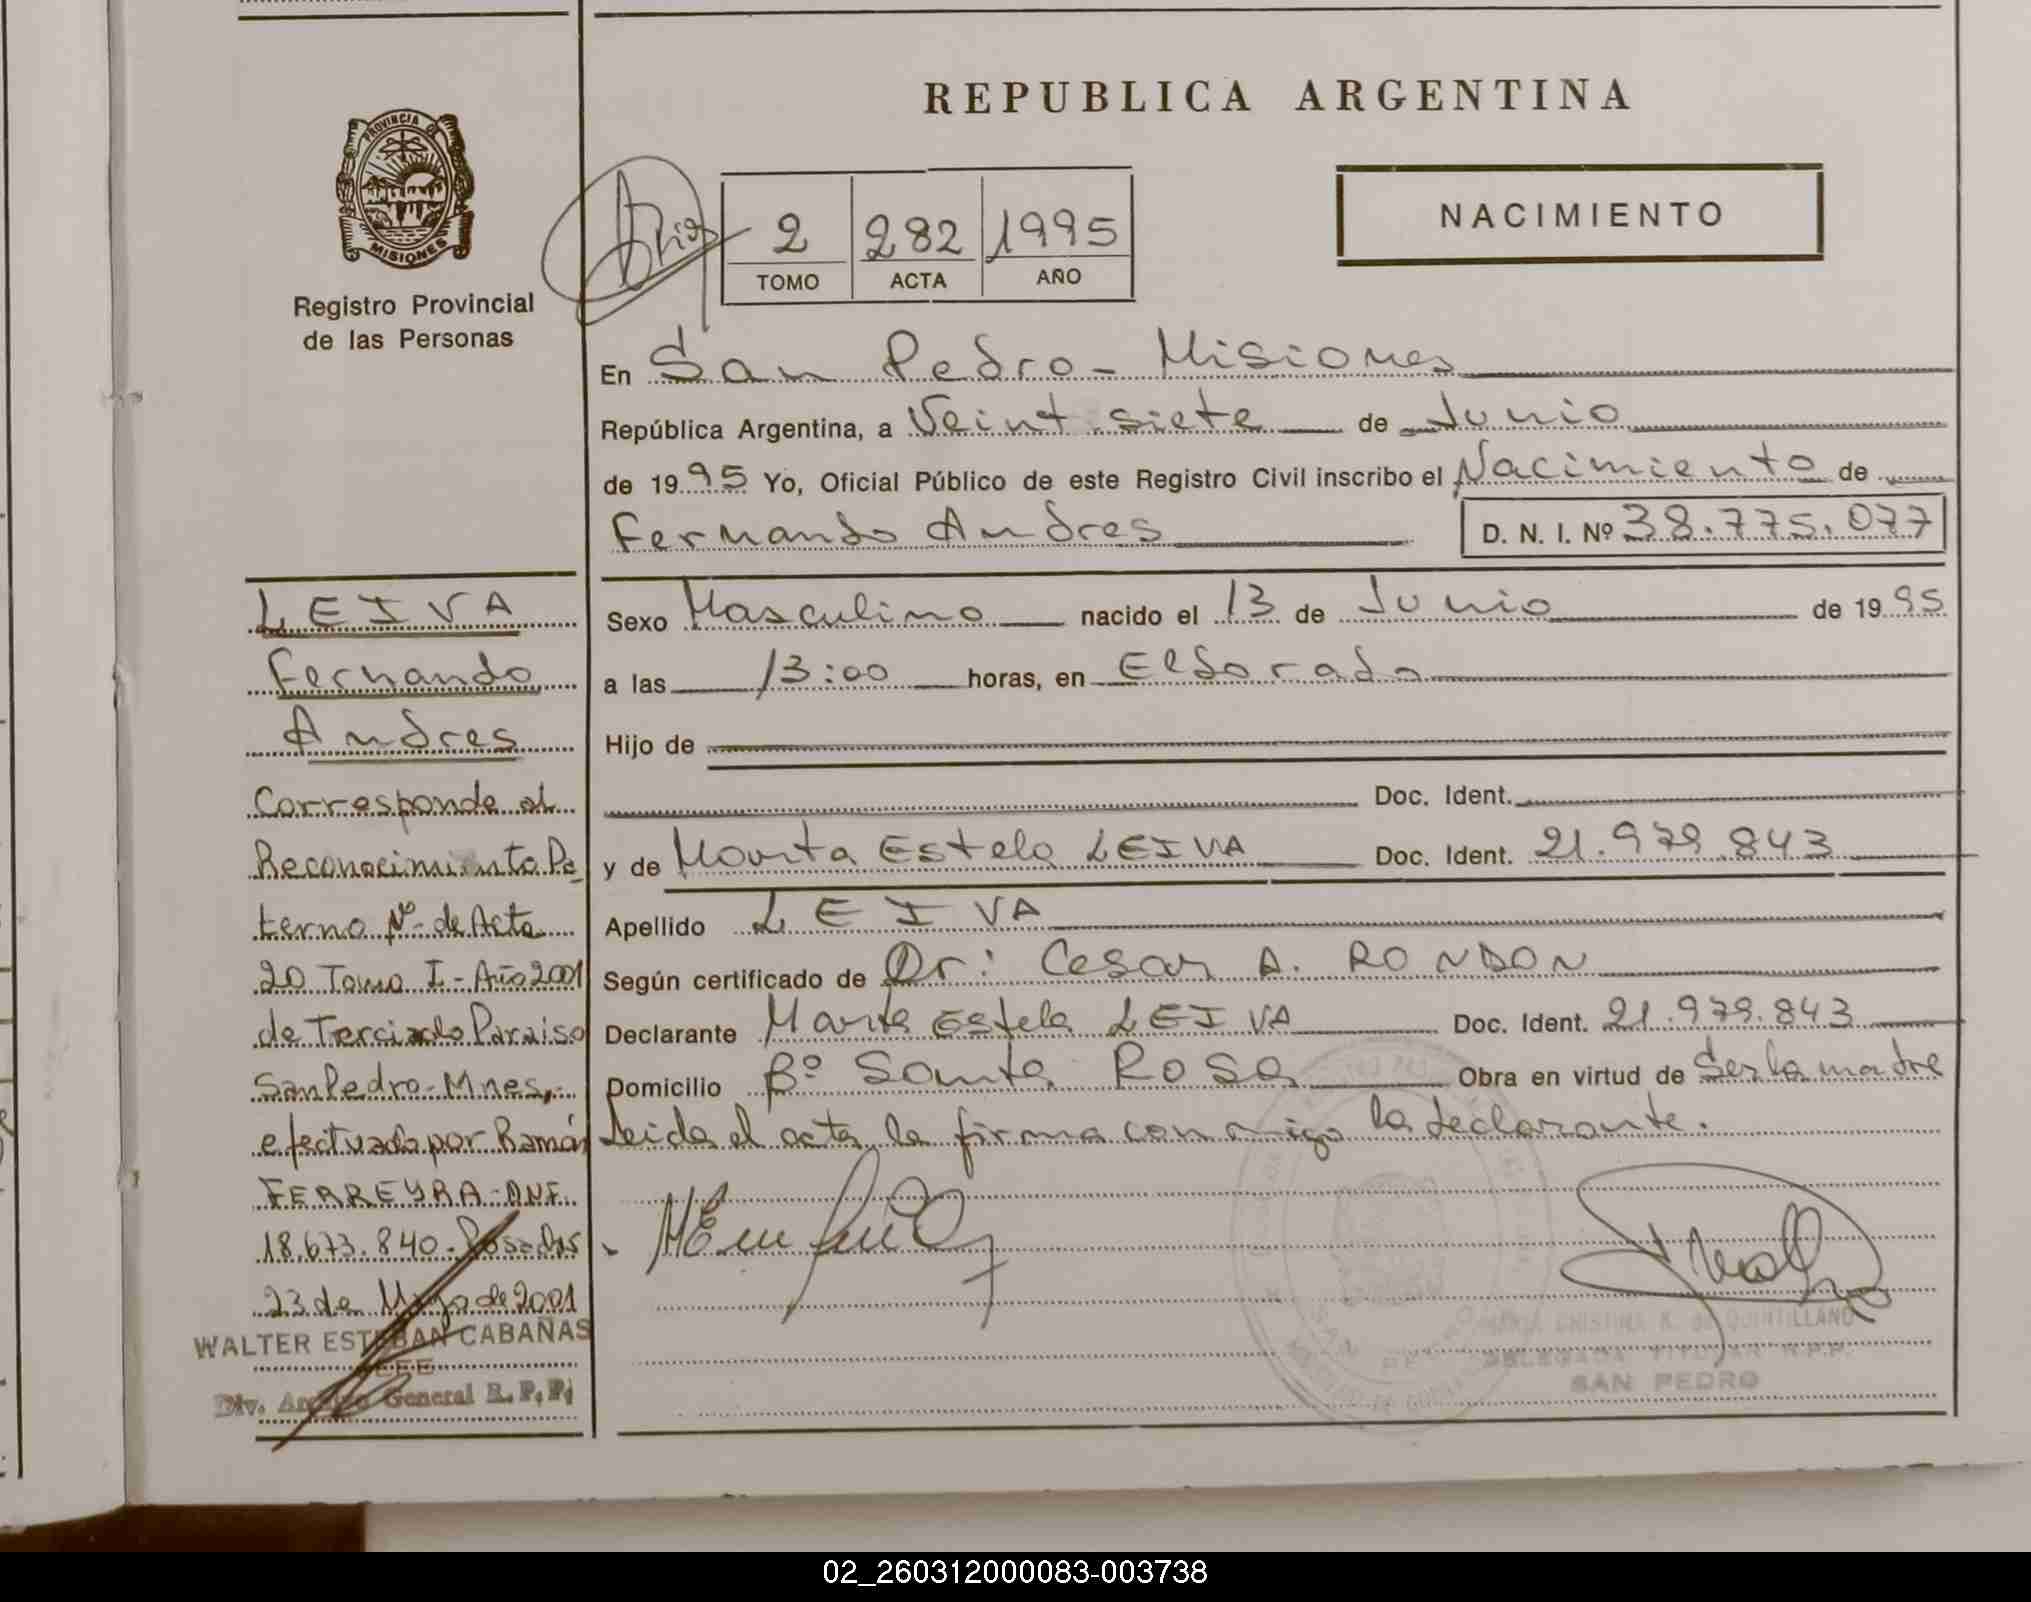 REPUBLICA ARGENTINA
PROVINCIA DE
MISIONES
Registro Provincial
de las Personas
2 282 1995
TOMO ACTA AÑO
NACIMIENTO
En San Pedro - Misiones
República Argentina, a Veintisiete de Junio
de 1995 Yo, Oficial Público de este Registro Civil inscribo el Nacimiento de
Fernando Andres D. N. I. Nº 38.775.077
Sexo Masculino nacido el 13 de Junio de 1995
a las 13:00 horas, en Eldorado
Hijo de
Doc. Ident.
y de Marta Estela LEIVA Doc. Ident. 21.979.843
Apellido LEIVA
Según certificado de Dr: Cesar A. RONDON
Declarante Marta Estela LEIVA Doc. Ident. 21.979.843
Domicilio Bº Santa Rosa Obra en virtud de Ser la madre
Leida el acta la firma conmigo la declarante.
LEIVA
Fernando
Andres
Corresponde al
Reconocimiento Pa_
terno Nº de Acta
20 Tomo I - Año 2001
de Terciado Paraiso
San Pedro - Mnes,-
efectuado por Ramón
FERREYRA - DNI.
18.673.840 - Posadas
23 de Mayo de 2001
WALTER ESTEBAN CABAÑAS
JEFE
Div. Archivo General R.P.P.
MARIA CRISTINA K. de QUINTILLANO
DELEGADA TITULAR R.P.P.
SAN PEDRO
02_260312000083-003738